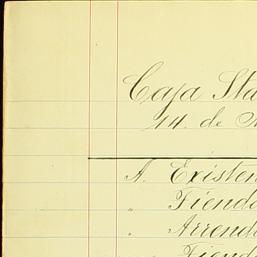 Caja Sta
14. de
A. Existen
" Tienda
" Arrend
" Tienda